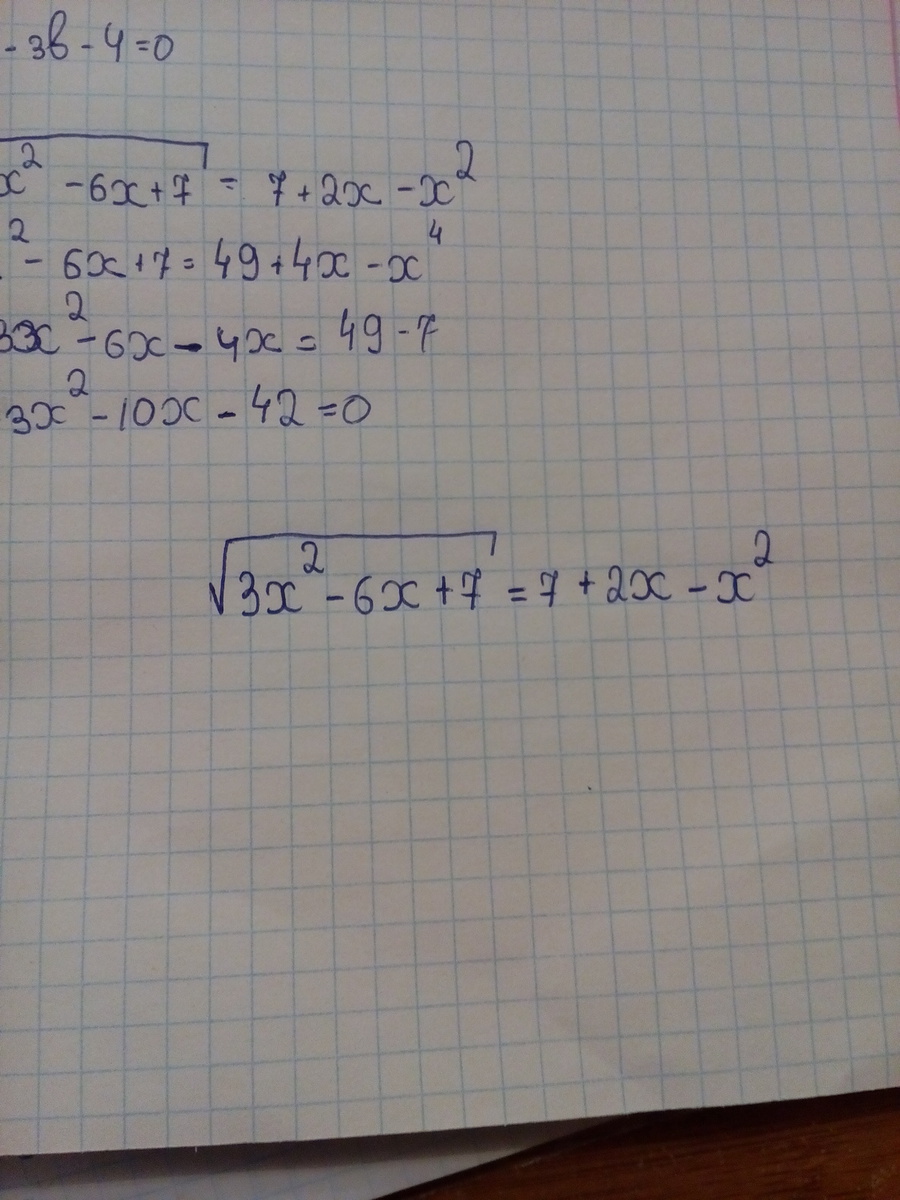 - 3в - 4 = 0
x² - 6x + 7 = 7 + 2x - x²
² - 6x + 7 = 49 + 4x - x⁴
3x² - 6x - 4x = 49 - 7
3x² - 10x - 42 = 0
√3x² - 6x + 7 = 7 + 2x - x²